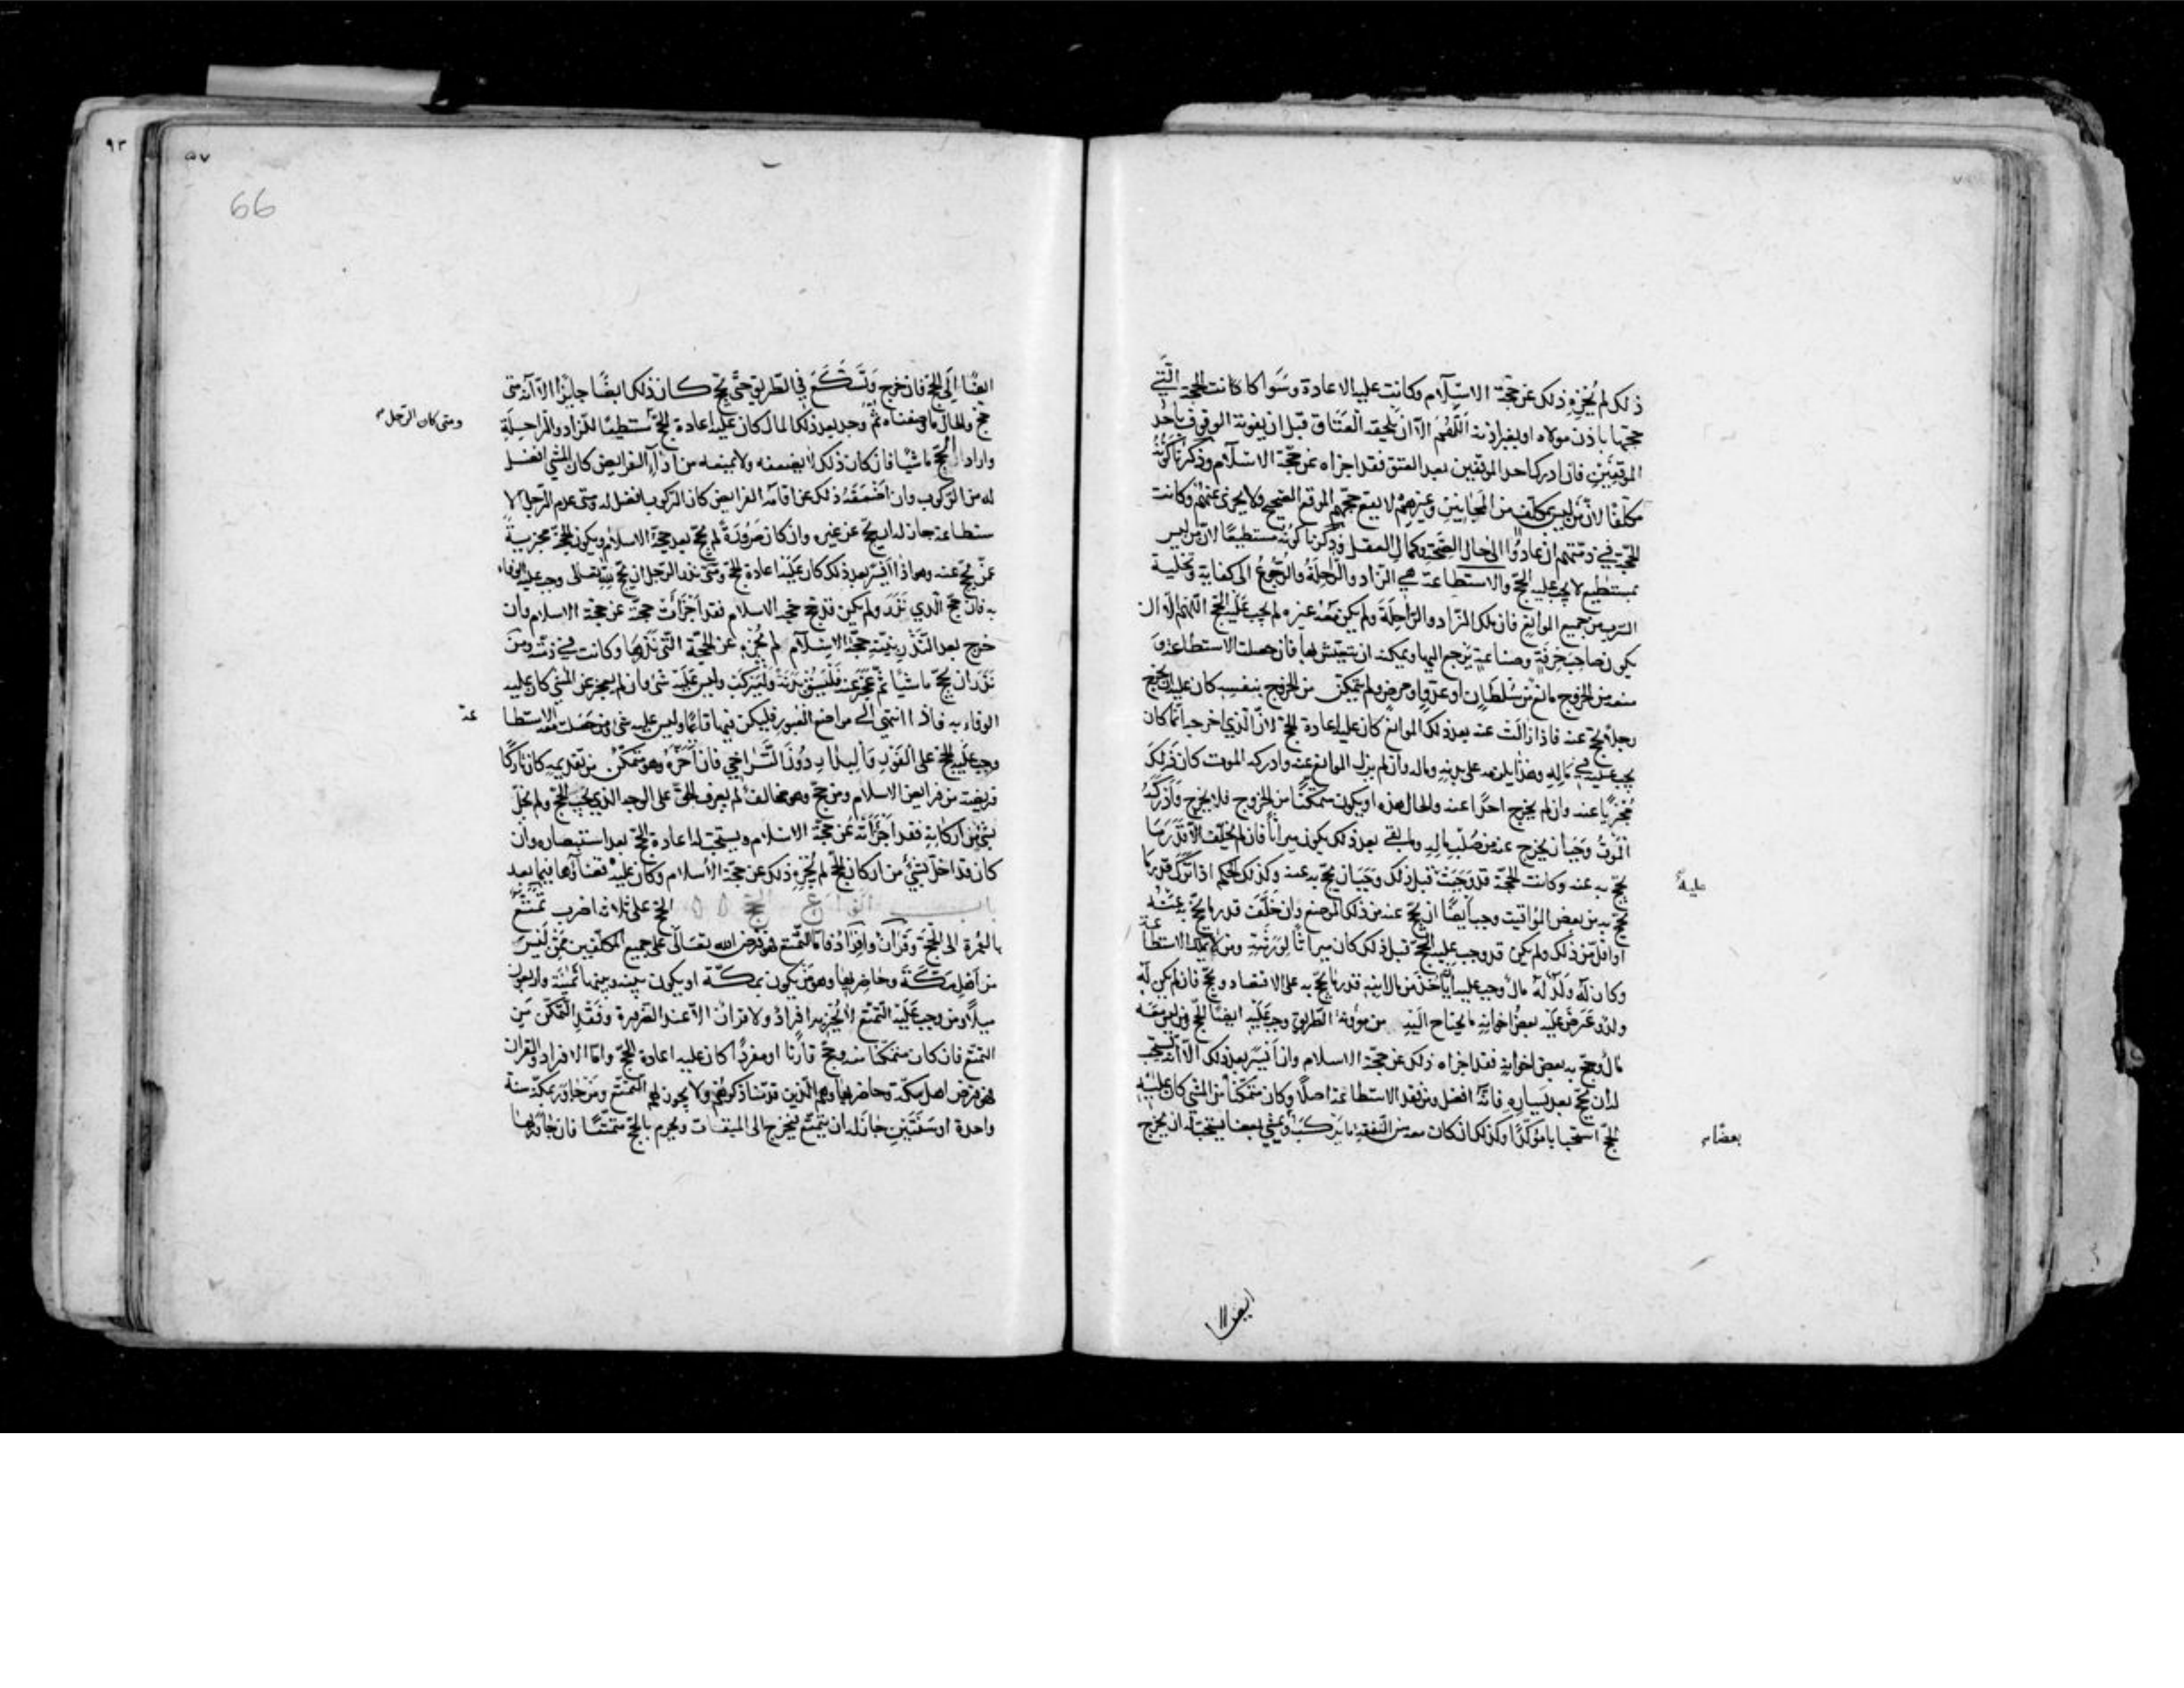 ذلك لم يُجْزِهِ ذلك عن حجّة الاسلام وكانت عليه الاعادة وسَواء كانت الحجة التي
حجّها باذن مولاه او بغير اذنه اللّهُم الّا ان يلحقه العتاق قبل ان يفوته الوقوف باحد
الموقفين فان ادرك احد الموقفين بعد العتق فقد اجزاه عن حجّة الاسلام وذكرنا كونه
مكلّفًا لانّ من ليس بمكلّف من المجانين وغيرهم لا يقع حجّهم الموقع الصحيح ولا يجزى عنهم وكانت
الحجّة في ذمّتهم ان عادوا الى حال الصّحّة وكمال العقل وذكرنا كونه مستطيعًا لانّ من ليس
بمستطيع لا يجب عليه الحجّ والاستطاعة هي الزّاد والرّاحلة والرّجوع الى كفاية وتخلية
السّرب من جميع الموانع فان ملك الزاد والرّاحلة ولم يكن معه غيره لم يجب عليه الحجّ اللّهم الّا ان
يكون صاحب حِرفة وصناعة يرجع اليها ويمكنه ان يتعيّش بها فان حصلت الاستطاعة و
منعه من الخروج مانع من سلطان او عدوّ او مرض ولم يتمكّن من الخروج بنفسه كان عليه ان يخرج
رجلًا يحجّ عنه فاذا زالت عنه بعد ذلك الموانع كان عليه اعادة الحجّ لانّ الذي اخرجه انّما كان
يجب عليه في ماله وهذا يلزمه على بدنه وماله وان لم يزل الموانع عنه وادركه الموت كان ذلك
مُجْزيًا عنه وان لم يخرج احدًا عنه والحال هذه او يكون متمكّنًا من الخروج فلا يخرج وادركه
الموتُ وجب ان يخرج عنه من صُلب ماله وما بقى بعد ذلك يكون ميراثًا فان لم يخلّف الّا قدر ما
يحجّ به عنه وكانت الحجّة قد وَجَبَتْ قبل ذلك وَجَبَ ان يحجّ به عنه وكذلك الحكم اذا ترك قدر ما
عليه
يحجّ به من بعض المواقيت وجب ايضًا ان يحجّ عنه من ذلك الموضع وان خلّف قدر ما يحجّ به عنه
او اقلّ من ذلك ولم يكن قد وجب عليه الحجّ قبل ذلك كان ميراثًا لورثته ومن لا يملك الاستطاعة
وكان له ولدٌ له مالٌ وجب عليه ان ياخذ من مال ابنه قدر ما يحجّ به على الاقتصاد ويحجّ فان لم يكن له
ولد وعرض عليه بعضُ اخوانه ما يحتاج اليه من مؤونة الطريق وجب عليه ايضًا الحجّ ومن ليس معه
مالٌ وحجّ به بعض اخوانه فقد اجزاه ذلك عن حجّة الاسلام وان ايسر بعد ذلك الّا انّه يستحب
له ان يحجّ بعد يساره فانّه افضل ومن فقد الاستطاعة اصلًا وكان متمكّنًا من المشي كان عليه
الحجّ استحبابا مؤكّدًا وكذلك ان كان معه من النّفقة ما يركب ويمشي بعضا يستحبّ له ان يخرج
بعضًا
ايضا
٩٣
٥٧
66
ايضًا الى الحجّ فان خرج وتَسَكَّعَ في الطّريق حتّى يحجّ كان ذلك ايضًا جايزًا الّا انّه متى
حجّ والحال ما وصفناه ثمّ وجد بعد ذلك المال كان عليه اعادة الحجّ مستطيعًا للزّاد والرّاحلة
ومتى كان الرّجل
واراد الحجّ ماشيًا فان كان ذلك لا يضعفه ولا يمنعه من اداء الفرايض كان المشي افضل
له من الرّكوب وان اضعفه ذلك عن اقامة الفرايض كان الركوب افضل له ومتى عدم الرّجل الا
ستطاعة جاز له ان يحجّ عن غيره وان كان صرورةً لم يحجّ بعد حجّة الاسلام ويكون الحجّة مجزيةً
عمّن يحجّ عنه وهو اذا ايسر بعد ذلك كان عليه اعادة الحجّ ومتى نذر الرّجل ان يحجّ لله تعالى وجب عليه الوفاء
به فان حجّ الذي نذر ولم يكن قد حجّ حجّة الاسلام فقد اجزأت حجّته عن حجّة الاسلام وان
خرج بعد النّذر بنيّة حجّة الاسلام لم يُجْزِهِ عن الحجّة التّي نذرها وكانت في ذمّته ومن
نذر ان يحجّ ماشيًا ثمّ عجز عنه فليسق بدنةً وليركب وليس عليه شئ وان لم يعجز عن المشي كان عليه
الوفاء به فاذا انتهى الى مواضع العبور فليكن فيها قائمًا وليس عليه شئ ومن حصلت معه الاستطا
عة
وجب عليه الحجّ على الفور والبدار دون التّراخي فان اخّره وهو متمكّن من تقديمه كان تاركًا
فريضة من فرايض الاسلام ومن حجّ وهو مخالف لم يعرف الحقّ على الوجه الذي يجب الحجّ ولم يخلّ
بشئ من اركانه فقد اجزأته عن حجّة الاسلام ويستحبّ له اعادة الحجّ بعد استبصاره وان
كان قد اخلّ بشئ من اركان الحجّ لم يُجْزِهِ ذلك عن حجّة الاسلام وكان عليه قضاؤها فيما بعد
باب انواع الحجّ الحجّ على ثلاثة اضرب تمتّع
بالعمرة الى الحجّة وقران وافراد فامّا التّمتّع فهو فرض الله تعالى على جميع المكلّفين ممّن ليس
من اهل مكّة وحاضريها وهو من يكون بمكّة او يكون بينه وبينها ثمنية واربعون
ميلًا ومن وجب عليه التّمتّع لا يُجْزيه افراد ولا قران الّا عند الضّرورة وفقد التّمكّن من
التمتّع فان كان متمكّنا منه وحجّ قارنا او مفردًا كان عليه اعادة الحجّ وامّا الافراد والقران
فهو فرض اهل مكّة وحاضريها وهم الّذين قدّمنا ذكرهم ولا يجوز لهم التّمتّع ومن جاور بمكّة سنة
واحدة او سنتين جاز له ان يتمتّع فيخرج الى الميقات ويحرم بالحجّ متمتّعًا فان جاور بها